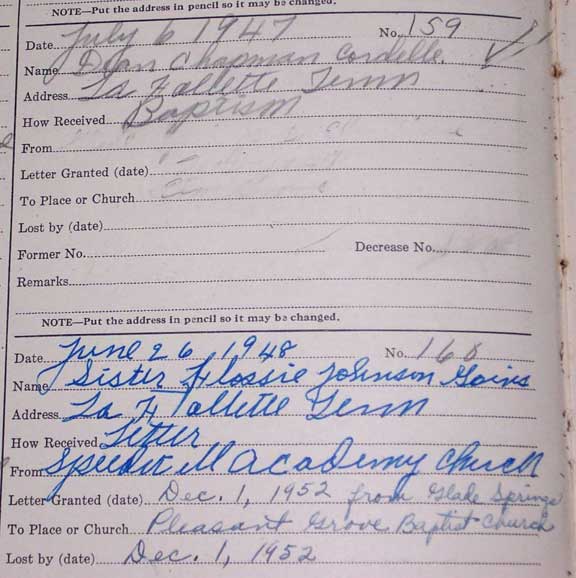 NOTE—Put the address in pencil so it may be changed.
Date July 6 1947 No. 159
Name Dean Chapman Cordelle
Address La Fallette Tenn
How Received Baptism
From
Letter Granted (date)
To Place or Church
Lost by (date)
Former No. Decrease No.
Remarks
NOTE—Put the address in pencil so it may be changed.
Date June 26, 1948 No. 160
Name Sister Flossie Johnson Goins
Address La Fallette Tenn
How Received Letter
From Speedwell Academy Church
Letter Granted (date) Dec. 1, 1952 from Glade Springs
To Place or Church Pleasant Grove Baptist Church
Lost by (date) Dec. 1, 1952